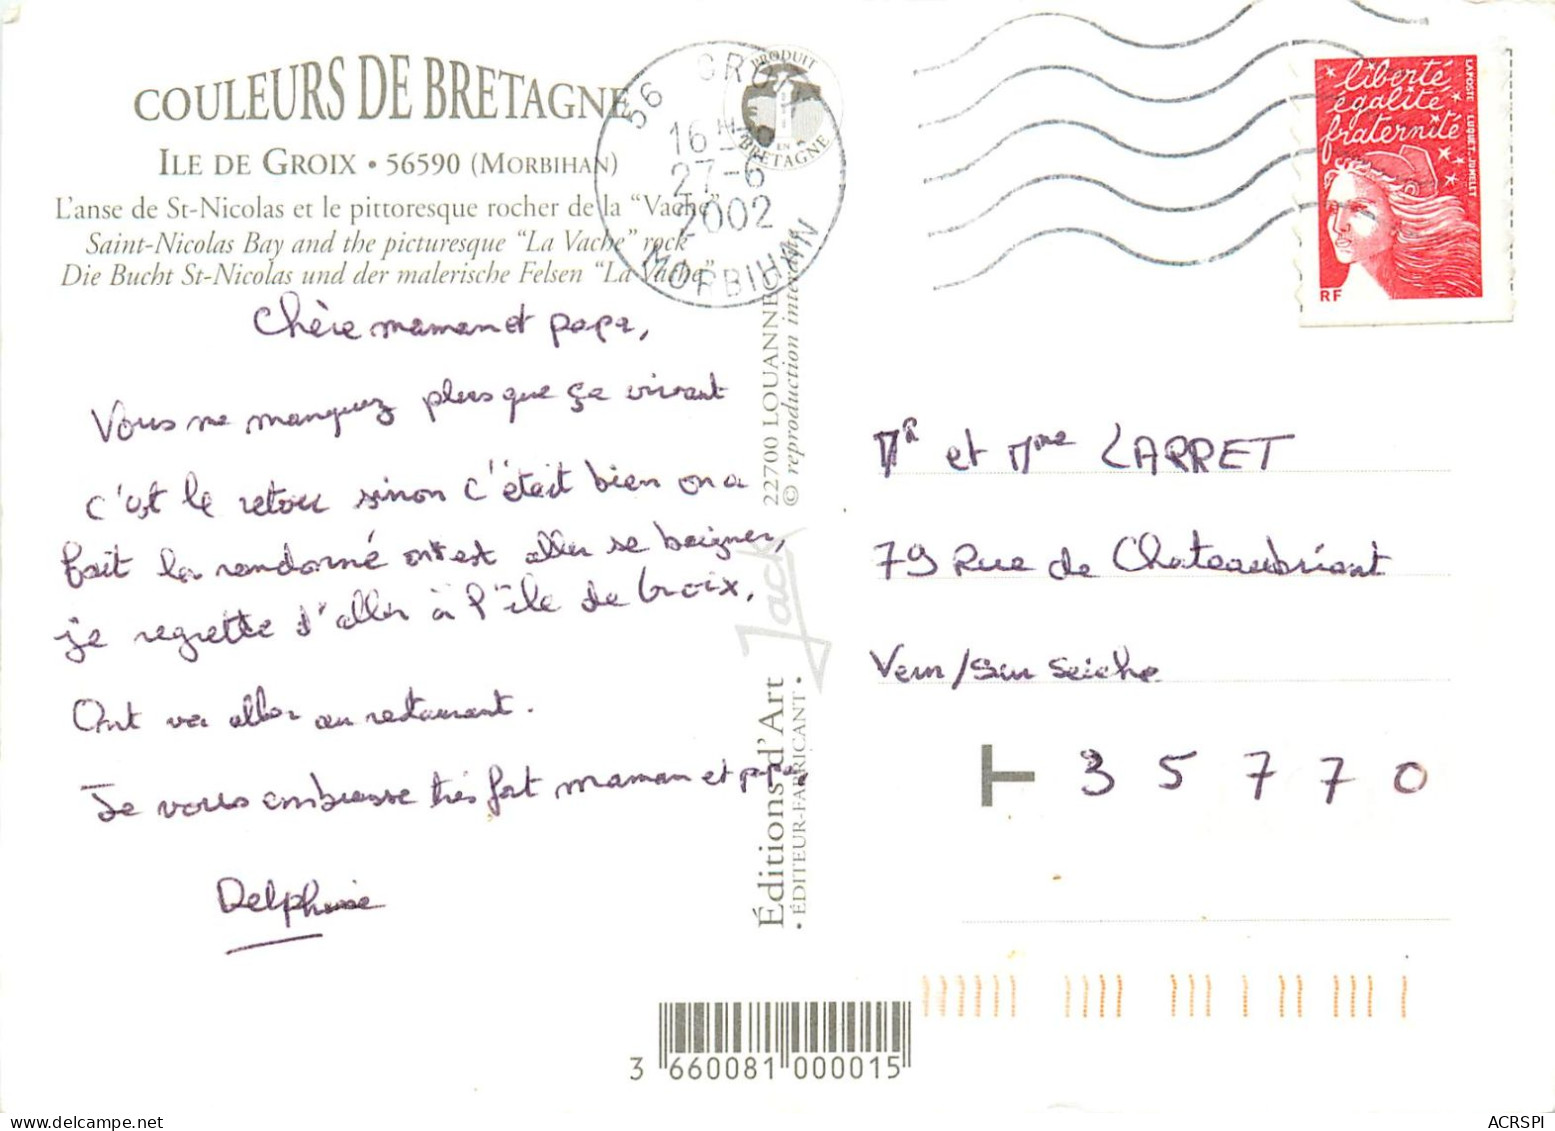 COULEURS DE BRETAGNE
ILE DE GROIX • 56590 (MORBIHAN)
L'anse de St-Nicolas et le pittoresque rocher de la "Vache"
Saint-Nicolas Bay and the picturesque "La Vache" rock
Die Bucht St-Nicolas und der malerische Felsen "La Vache"
Chère maman et papa,
Vous me manquez plus que ça vivant
c'est le retour sinon c'était bien on a
fait la randonné ont est aller se baigner,
je regrette d'aller à l'île de Groix,
Ont va aller au restaurant.
Je vous embrasse très fort maman et papa,
Delphine
PRODUIT
EN
BRETAGNE
56 GROIX
16 H
27-6
2002
MORBIHAN
22700 LOUANNEC
© reproduction interdite
Jack
Éditions d'Art
• ÉDITEUR-FABRICANT •
liberté
égalité
fraternité
LA POSTE LUQUET-JUMELET
RF
Mr et Mme LARRET
79 Rue de Chateaubriant
Vern/sur seiche
35770
3 660081 000015
ACRSPI